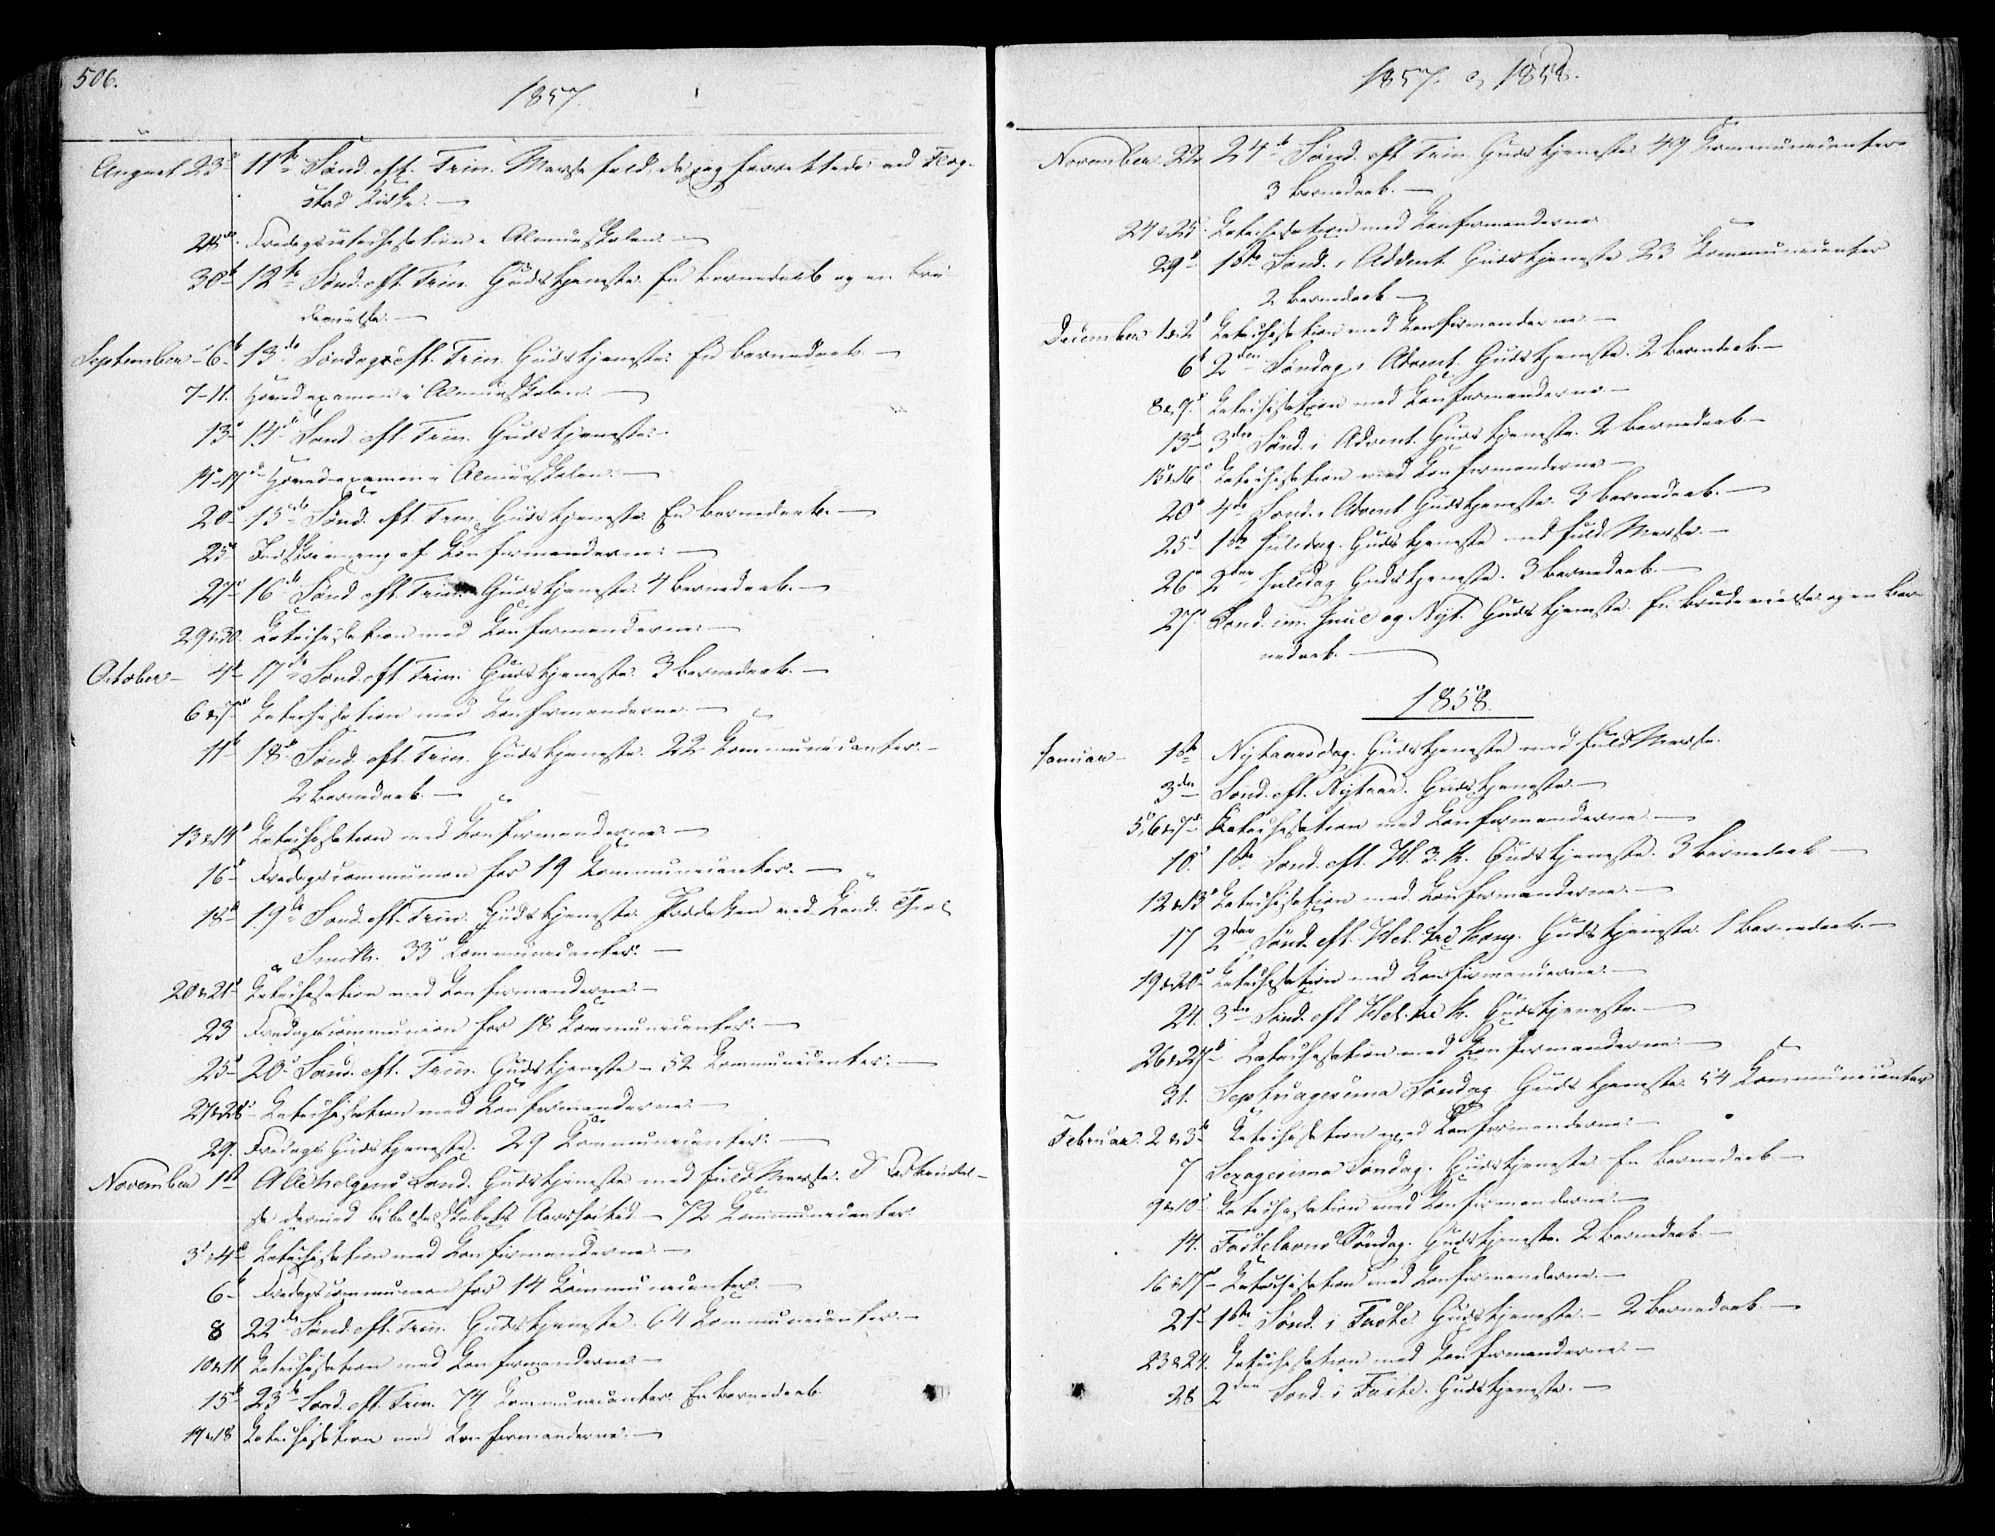 506.
1857.
August 23d 11te Sønd. eft. Trin. Messefald, da jeg forrettede ved Flag-
stad Kirke. —
28de. Fredagscatechisation i Almueskolen. —
30te 12te Sønd. eft. Trin. Gudstjeneste. En Barnedaab og en Bru-
devielse. —
September 6te 13de Søndag eft. Trin. Gudstjeneste. En Barnedaab. —
7-11. Hovedexamen i Almueskolen. —
13de 14de Sønd. eft. Trin. Gudstjeneste. —
14-17de Hovedexamen i Almueskolen. —
20de 15de Sønd. eft. Trin. Gudstjeneste. En Barnedaab. —
25de Indskrivning af Konfirmanderne. —
27de 16de Sønd. eft. Trin. Gudstjeneste. 4 Barnedaab. —
29 & 30. Katechisation med Konfirmanderne. —
October 4de 17de Sønd. eft. Trin. Gudstjeneste. 3 Barnedaab. —
6 & 7de Katechisation med Konfirmanderne. —
11te 18de Sønd. eft. Trin. Gudstjeneste. 22 Kommunicanter. —
2 Barnedaab. —
13 & 14de Katechisation med Konfirmanderne. —
16de Fredagscommunion for 19 Kommunicanter. —
18de 19de Sønd. eft. Trin. Gudstjeneste. Prædiken ved Kand. Theol.
Smith. 33 Kommunicanter. —
20 & 21de Katechisation med Konfirmanderne. —
23 Fredagscommunion for 18 Kommunicanter. —
25de 20de Sønd. eft. Trin. Gudstjeneste — 52 Kommunicanter. —
27 & 28de Katechisation med Konfirmanderne. —
29. Fredags Gudstjeneste. 29 Kommunicanter. —
November 1ste Allehelgens Sønd. Gudstjeneste med fuld Messe.
se dermed Bibelselskabets Aarshøitid — 72 Kommunicanter.
3 & 4de Katechisation med Konfirmanderne. —
6te Fredagscommunion for 14 Kommunicanter. —
8 22de Sønd. eft. Trin. Gudstjeneste. 64 Kommunicanter. —
10 & 11 Katechisation med Konfirmanderne —
15de 23de Sønd. eft. Trin. 74 Kommunicanter. En Barnedaab
17 & 18 Katechisation med Konfirmanderne. —
1857. og 1858.
November 22. 24de Sønd. eft. Trin. Gudstjeneste 49 Kommunicanter
3 Barnedaab. —
24 & 25. Katechisation med Konfirmanderne
29de 1ste Sønd. i Advent Gudstjeneste 23 Kommunicanter
2 Barnedaab —
December 1 & 2de Katechisation med Konfirmanderne —
6te 2den Søndag i Advent. Gudstjeneste. 2 Barnedaab. —
8 & 9de Katechisation med Konfirmanderne —
13de 3die Sønd. i Advent. Gudstjeneste. 2 Barnedaab. —
15 & 16de Katechisation med Konfirmanderne —
20de 4de Sønd. i Advent Gudstjeneste. 3 Barnedaab. —
25de 1ste Juledag. Gudstjeneste med fuld Messe. —
26de 2den Juledag Gudstjeneste. 3 Barnedaab. —
27de Sønd. im. Juul og Nyt. Gudstjeneste. En Brudevielse og en Bar-
nedaab. —
1858.
Januar 1ste Nytaarsdag. Gudstjeneste med fuld Messe.
3die Sønd. eft. Nytaar. Gudstjeneste. —
5, 6 & 7de Katechisation med Konfirmanderne —
10de 1ste Sønd. eft. H. 3. K. Gudstjeneste. 3 Barnedaab —
12 & 13de Katechisation med Konfirmanderne. —
17 2den Sønd. eft. Hel. tre Kong. Gudstjeneste. 1 Barnedaab. —
19 & 20de Katechisation med Konfirmanderne. —
24. 3die Sønd. eft Hel. tre K. Gudstjeneste. —
26 & 27de Katechisation med Konfirmanderne. —
31. Septuagesima Søndag Gudstjeneste. 54 Kommunicanter
Februar. 2 & 3de Katechisation med Konfirmanderne. —
7 Sexagesima Søndag. Gudstjeneste. En Barnedaab —
9 & 10de Katechisation med Konfirmanderne. —
14. Fastelavns Søndag. Gudstjeneste. 2 Barnedaab —
16 & 17de Katechisation med Konfirmanderne. —
21de 1ste Sønd. i Faste. Gudstjeneste. — 2 Barnedaab. —
23 & 24. Katechisation med Konfirmanderne. —
28 2den Sønd. i Faste. Gudstjeneste. —